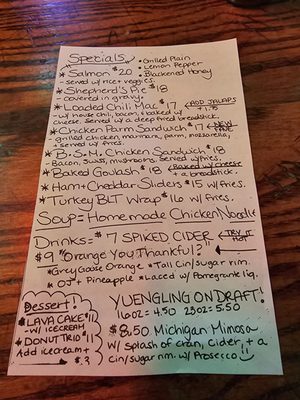 Specials
• Grilled Plain
• Lemon Pepper
• Blackened Honey
* Salmon $20
- served w/ rice + veggies.
* Shepherd's Pie $18
- covered in gravy.
* Loaded Chili Mac $17 ← ADD JALAPS + 1.75
- w/ house chili, bacon, & baked w/
cheese. Served w/ a deep fried breadstick.
* Chicken Parm Sandwich $17 ← NEW FAVE
- grilled chicken, marinara, parm, mozzarella,
+ served w/ fries.
* B.S.M. Chicken Sandwich $18
Bacon, Swiss, mushrooms. Served w/ fries.
* Baked Goulash $18 Baked w/ cheese
+ a breadstick.
* Ham + Cheddar Sliders $15 w/ fries.
* Turkey BLT Wrap $16 w/ fries.
Soup = Homemade Chicken Noodle
Drinks = $7 SPIKED CIDER ← TRY IT HOT
$9 "Orange You Thankful?" ←
* Grey Goose Orange * Tall Cin/sugar rim.
* OJ + Pineapple * Laced w/ Pomegranate liq.
Dessert!
* LAVA CAKE $11
- w/ ICECREAM
* DONUT TRIO $11
Add icecream +
$.3
YUENGLING ON DRAFT!
16oz = 4.50 23oz = 5.50
$8.50 Michigan Mimosa
w/ splash of cran, Cider, + a
cin/sugar rim. w/ Prosecco